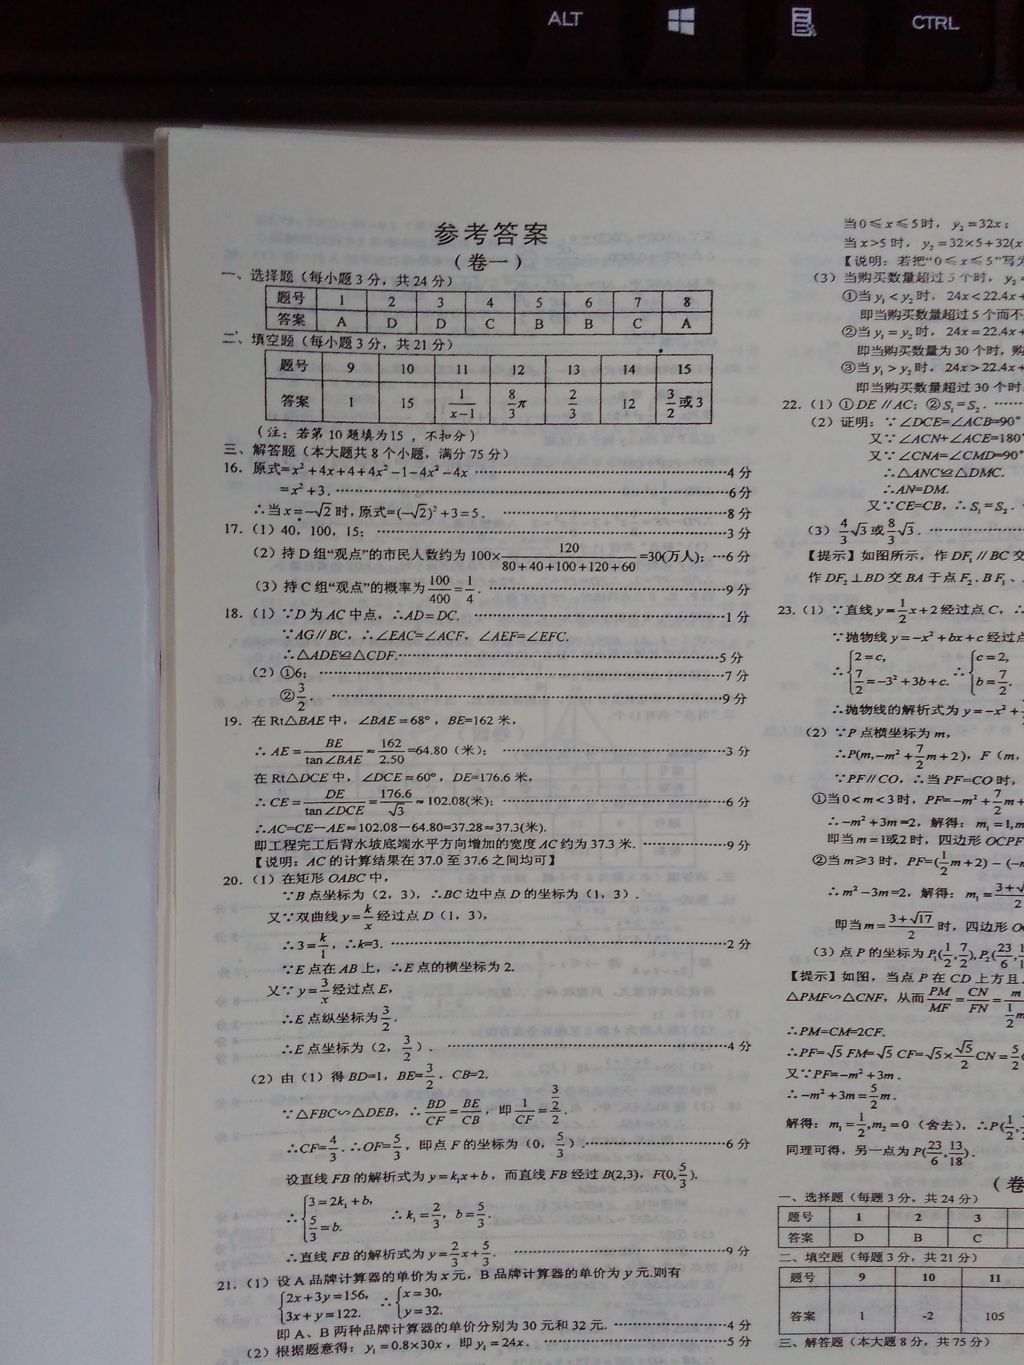 ALT
CTRL
参考答案
(卷一)
一、选择题(每小题3分,共24分)
题号 1 2 3 4 5 6 7 8
答案 A D D C B B C A
二、填空题(每小题3分,共21分)
题号 9 10 11 12 13 14 15
答案 1 15 1/(x-1) 8/3π 2/3 12 3/2或3
(注:若第10题填为15,不扣分)
三、解答题(本大题共8个小题,满分75分)
16.原式=x²+4x+4+4x²-1-4x²-4x ……4分
=x²+3.……6分
∴当x=-√2时,原式=(-√2)²+3=5. ……8分
17.(1)40,100,15; ……3分
(2)持D组“观点”的市民人数约为100×120/(80+40+100+120+60)=30(万人);…6分
(3)持C组“观点”的概率为100/400=1/4.……9分
18.(1)∵D为AC中点,∴AD=DC. ……1分
∵AG∥BC,∴∠EAC=∠ACF,∠AEF=∠EFC.
∴△ADE≌△CDF.……5分
(2)①6; ……7分
②3/2. ……9分
19.在Rt△BAE中,∠BAE=68°,BE=162米,
∴AE=BE/tan∠BAE≈162/2.50=64.80(米); ……3分
在Rt△DCE中,∠DCE=60°,DE=176.6米,
∴CE=DE/tan∠DCE=176.6/√3≈102.08(米); ……6分
∴AC=CE-AE≈102.08-64.80=37.28≈37.3(米).
即工程完工后背水坡底端水平方向增加的宽度AC约为37.3米. ……9分
【说明:AC的计算结果在37.0至37.6之间均可】
20.(1)在矩形OABC中,
∵B点坐标为(2,3),∴BC边中点D的坐标为(1,3).
又∵双曲线y=k/x经过点D(1,3),
∴3=k/1,∴k=3.……2分
∵E点在AB上,∴E点的横坐标为2.
又∵y=3/x经过点E,
∴E点纵坐标为3/2.
∴E点坐标为(2,3/2). ……4分
(2)由(1)得BD=1,BE=3/2,CB=2.
∵△FBC∽△DEB,∴BD/CF=BE/CB,即1/CF=(3/2)/2.
∴CF=4/3.∴OF=5/3,即点F的坐标为(0,5/3).……6分
设直线FB的解析式为y=k₁x+b,而直线FB经过B(2,3),F(0,5/3).
∴{3=2k₁+b, 5/3=b. ∴k₁=2/3,b=5/3.
∴直线FB的解析式为y=2/3x+5/3. ……9分
21.(1)设A品牌计算器的单价为x元,B品牌计算器的单价为y元.则有
{2x+3y=156, 3x+y=122. ∴{x=30, y=32.
即A、B两种品牌计算器的单价分别为30元和32元.……4分
(2)根据题意得:y₁=0.8×30x,即y₁=24x. ……5分
当0≤x≤5时,y₂=32x;
当x>5时,y₂=32×5+32(x
【说明:若把“0≤x≤5”写为
(3)当购买数量超过5个时,y₂=
①当y₁<y₂时,24x<22.4x+
即当购买数量超过5个而不
②当y₁=y₂时,24x=22.4x+
即当购买数量为30个时,购
③当y₁>y₂时,24x>22.4x+
即当购买数量超过30个时
22.(1)①DE∥AC;②S₁=S₂.……
(2)证明:∵∠DCE=∠ACB=90°
又∵∠ACN+∠ACE=180°
又∵∠CNA=∠CMD=90°
∴△ANC≌△DMC.
∴AN=DM.
又∵CE=CB,∴S₁=S₂.
(3)4/3√3或8/3√3.……
【提示】如图所示,作DF₁∥BC交
作DF₂⊥BD交BA于点F₂.BF₁、
23.(1)∵直线y=1/2x+2经过点C,∴
∵抛物线y=-x²+bx+c经过点
∴{2=c, 7/2=-3²+3b+c. ∴{c=2, b=7/2.
∴抛物线的解析式为y=-x²+
(2)∵P点横坐标为m,
∴P(m,-m²+7/2m+2),F(m,
∵PF∥CO,∴当PF=CO时,
①当0<m<3时,PF=-m²+7/2m+
∴-m²+3m=2,解得:m₁=1,m
即当m=1或2时,四边形OCPF
②当m≥3时,PF=(1/2m+2)-(-m
∴m²-3m=2,解得:m₁=3+√
即当m=(3+√17)/2时,四边形OC
(3)点P的坐标为P₁(1/2,7/2),P₂(23/6,
【提示】如图,当点P在CD上方且
△PMF∽△CNF,从而PM/MF=CN/FN=m/(1/2m
∴PM=CM=2CF.
∴PF=√5FM=√5CF=√5×√5/2CN=5/2
又∵PF=-m²+3m.
∴-m²+3m=5/2m.
解得:m₁=1/2,m₂=0(舍去),∴P(1/2,
同理可得,另一点为P(23/6,13/18).
(卷
一、选择题(每题3分,共24分)
题号 1 2 3
答案 D B C
二、填空题(每题3分,共21分)
题号 9 10 11
答案 1 -2 105
三、解答题(本大题8分,共75分)